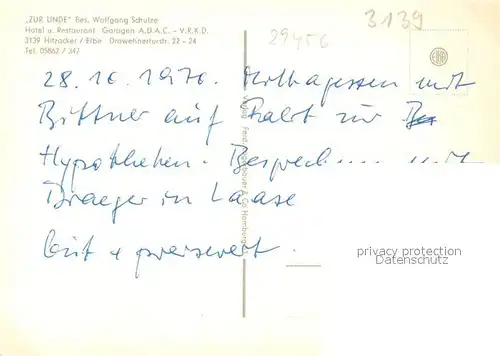 „ZUR LINDE" Bes. Wolfgang Schulze
Hotel u. Restaurant Garagen A.D.A.C. – V.R.K.D.
3139 Hitzacker / Elbe Drawehnertorstr. 22 - 24
Tel. 05862 / 347
3139
29456
28.10.1970. Mittagessen mit
Büttner auf Fahrt zur
Hypotheken. Besprech.... mit
Draeger in Laase
Gut + preiswert.
Verlag Ferd. & Co Hamburg
privacy protection
Datenschutz